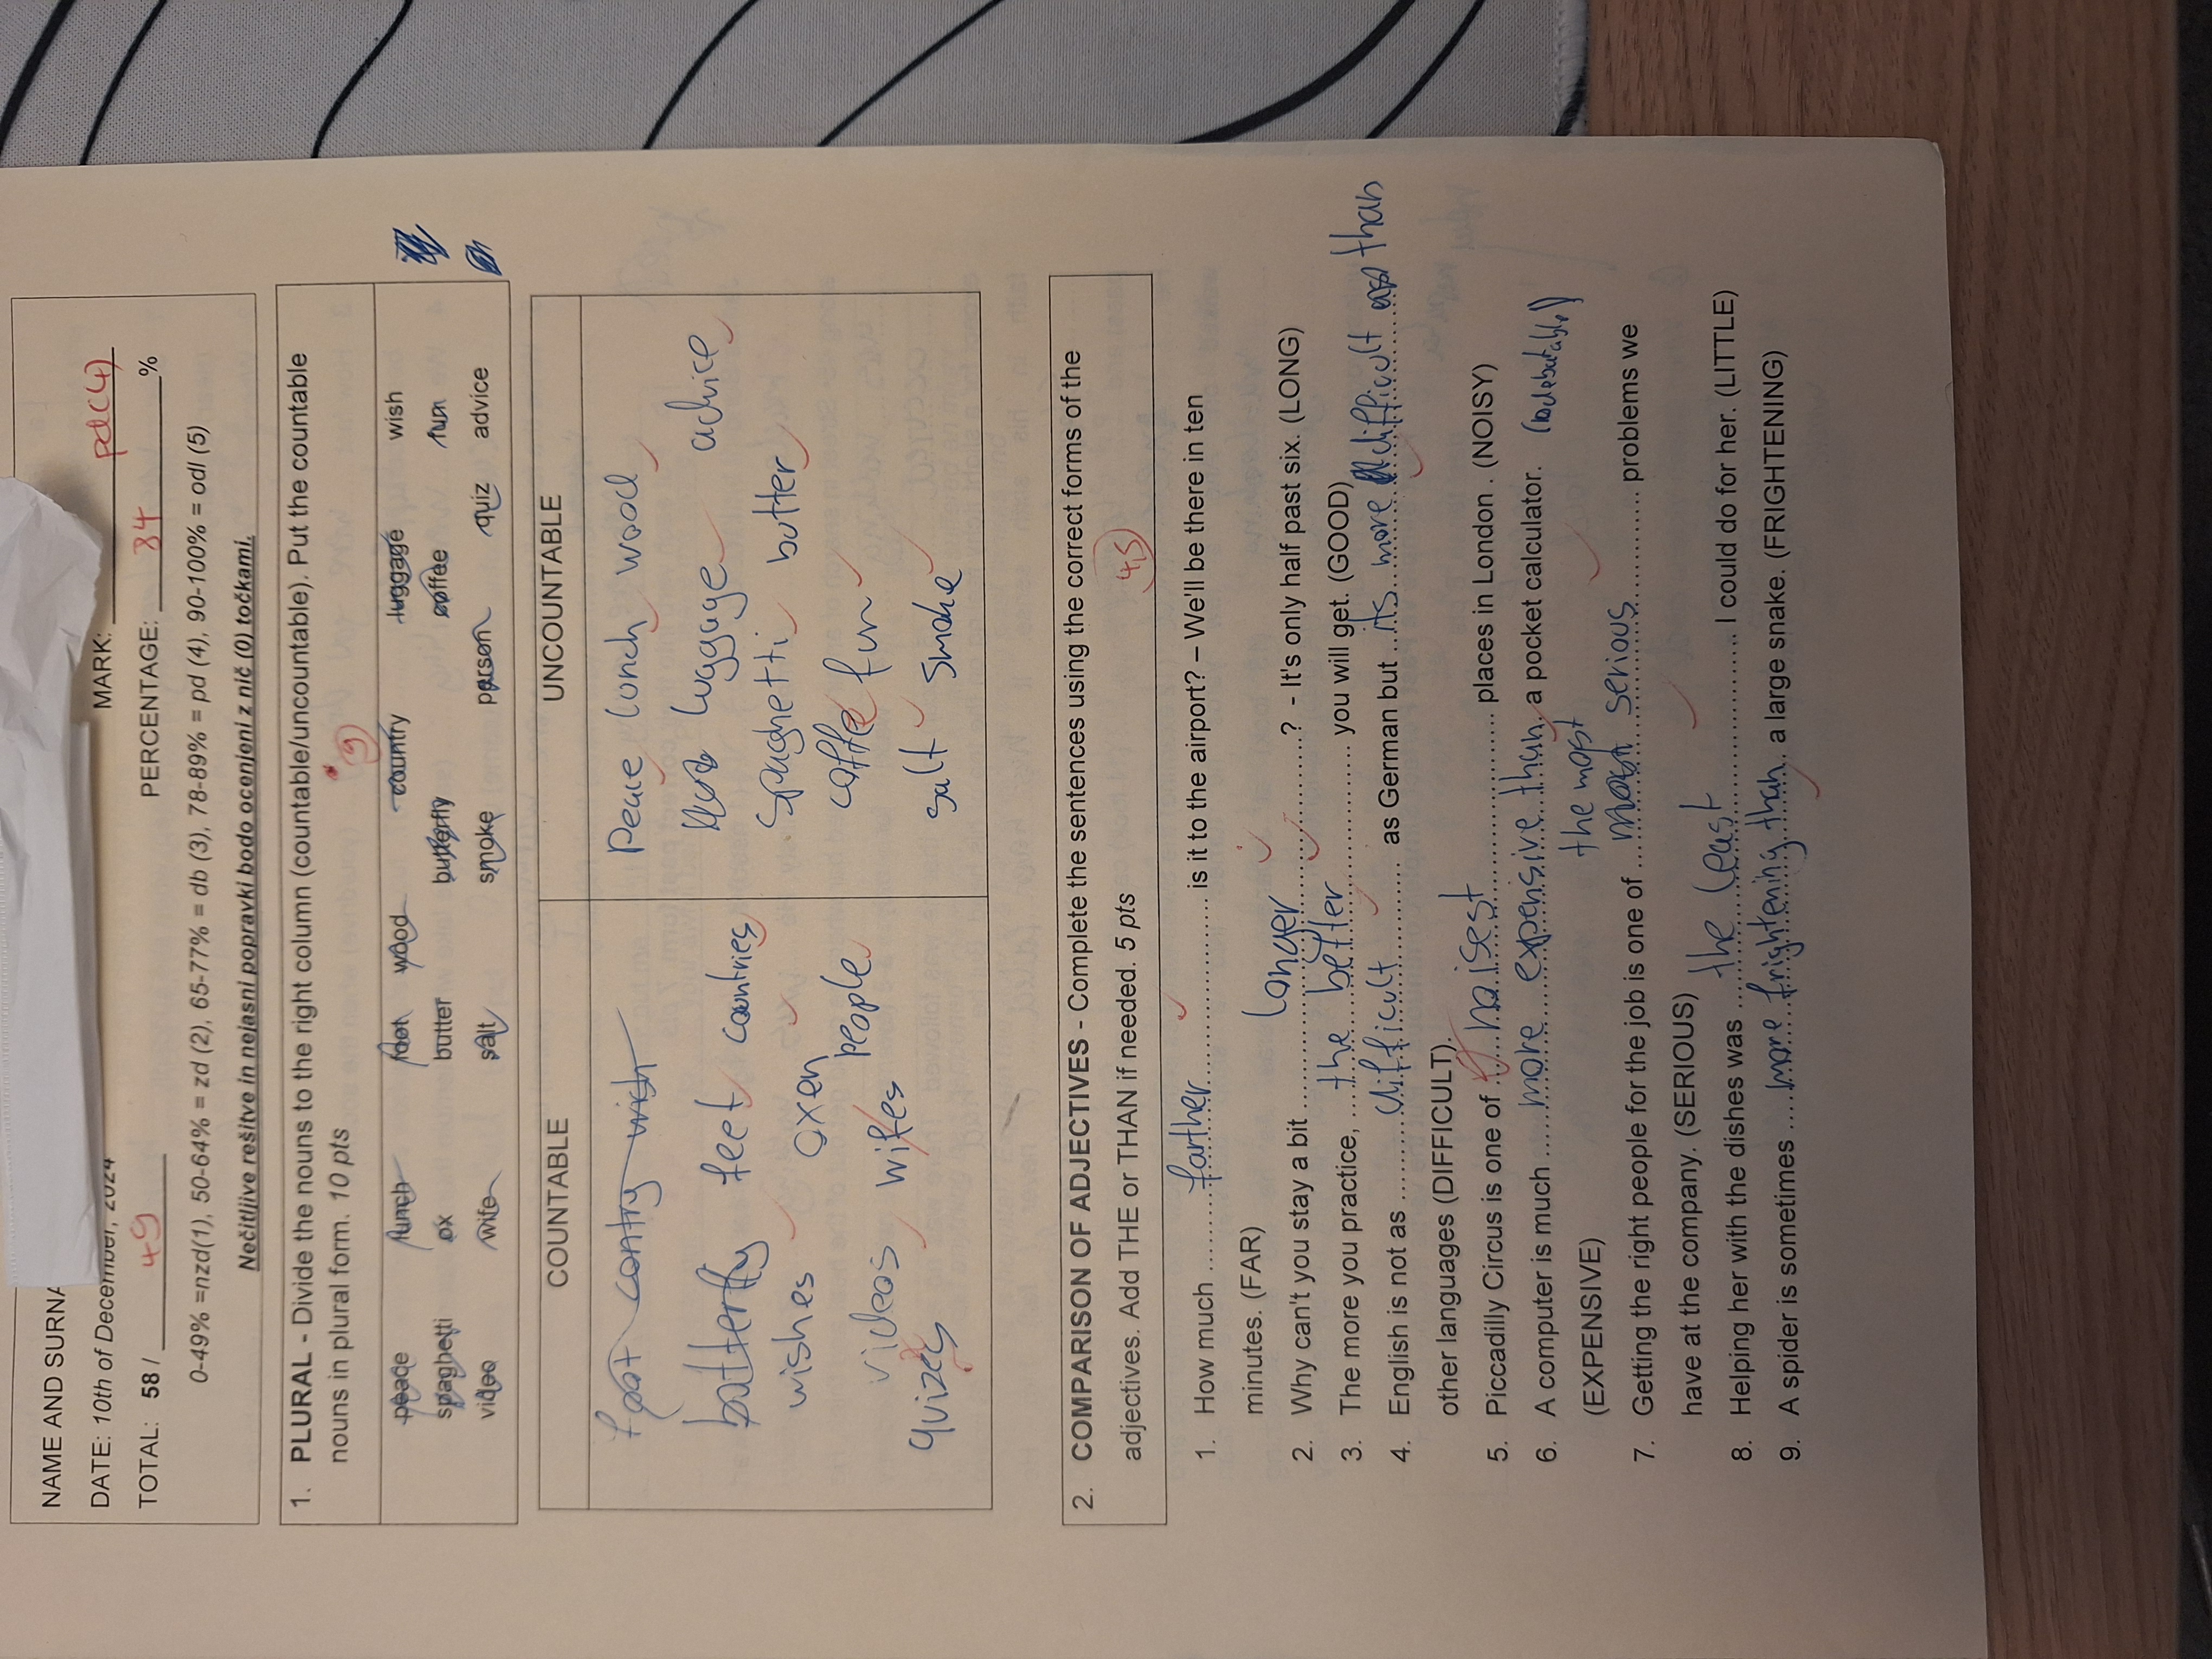 NAME AND SURNA
DATE: 10th of December, 2024 MARK: pd(4)
TOTAL: 58 / 49 PERCENTAGE: 84 %
0-49% =nzd(1), 50-64% = zd (2), 65-77% = db (3), 78-89% = pd (4), 90-100% = odl (5)
Nečitljive rešitve in nejasni popravki bodo ocenjeni z nič (0) točkami.
1. PLURAL - Divide the nouns to the right column (countable/uncountable). Put the countable
nouns in plural form. 10 pts
9
peace lunch foot wood country luggage wish
spaghetti ox butter butterfly coffee fun
video wife salt smoke person quiz advice
COUNTABLE UNCOUNTABLE
foot contry wish Peace lunch wood
butterfly feet countries luggage advice
wishes oxen spaghetti butter
people coffe fun
videos wifes
quizes salt smoke
2. COMPARISON OF ADJECTIVES - Complete the sentences using the correct forms of the
adjectives. Add THE or THAN if needed. 5 pts 4,5
1. How much farther is it to the airport? – We'll be there in ten
minutes. (FAR)
2. Why can't you stay a bit longer ? - It's only half past six. (LONG)
3. The more you practice, the better you will get. (GOOD)
4. English is not as difficult as German but its more difficult than
other languages (DIFFICULT).
5. Piccadilly Circus is one of noisest places in London . (NOISY)
6. A computer is much more expensive than a pocket calculator.
(EXPENSIVE)
the most
7. Getting the right people for the job is one of most serious problems we
have at the company. (SERIOUS)
8. Helping her with the dishes was the least I could do for her. (LITTLE)
9. A spider is sometimes more frightening than a large snake. (FRIGHTENING)